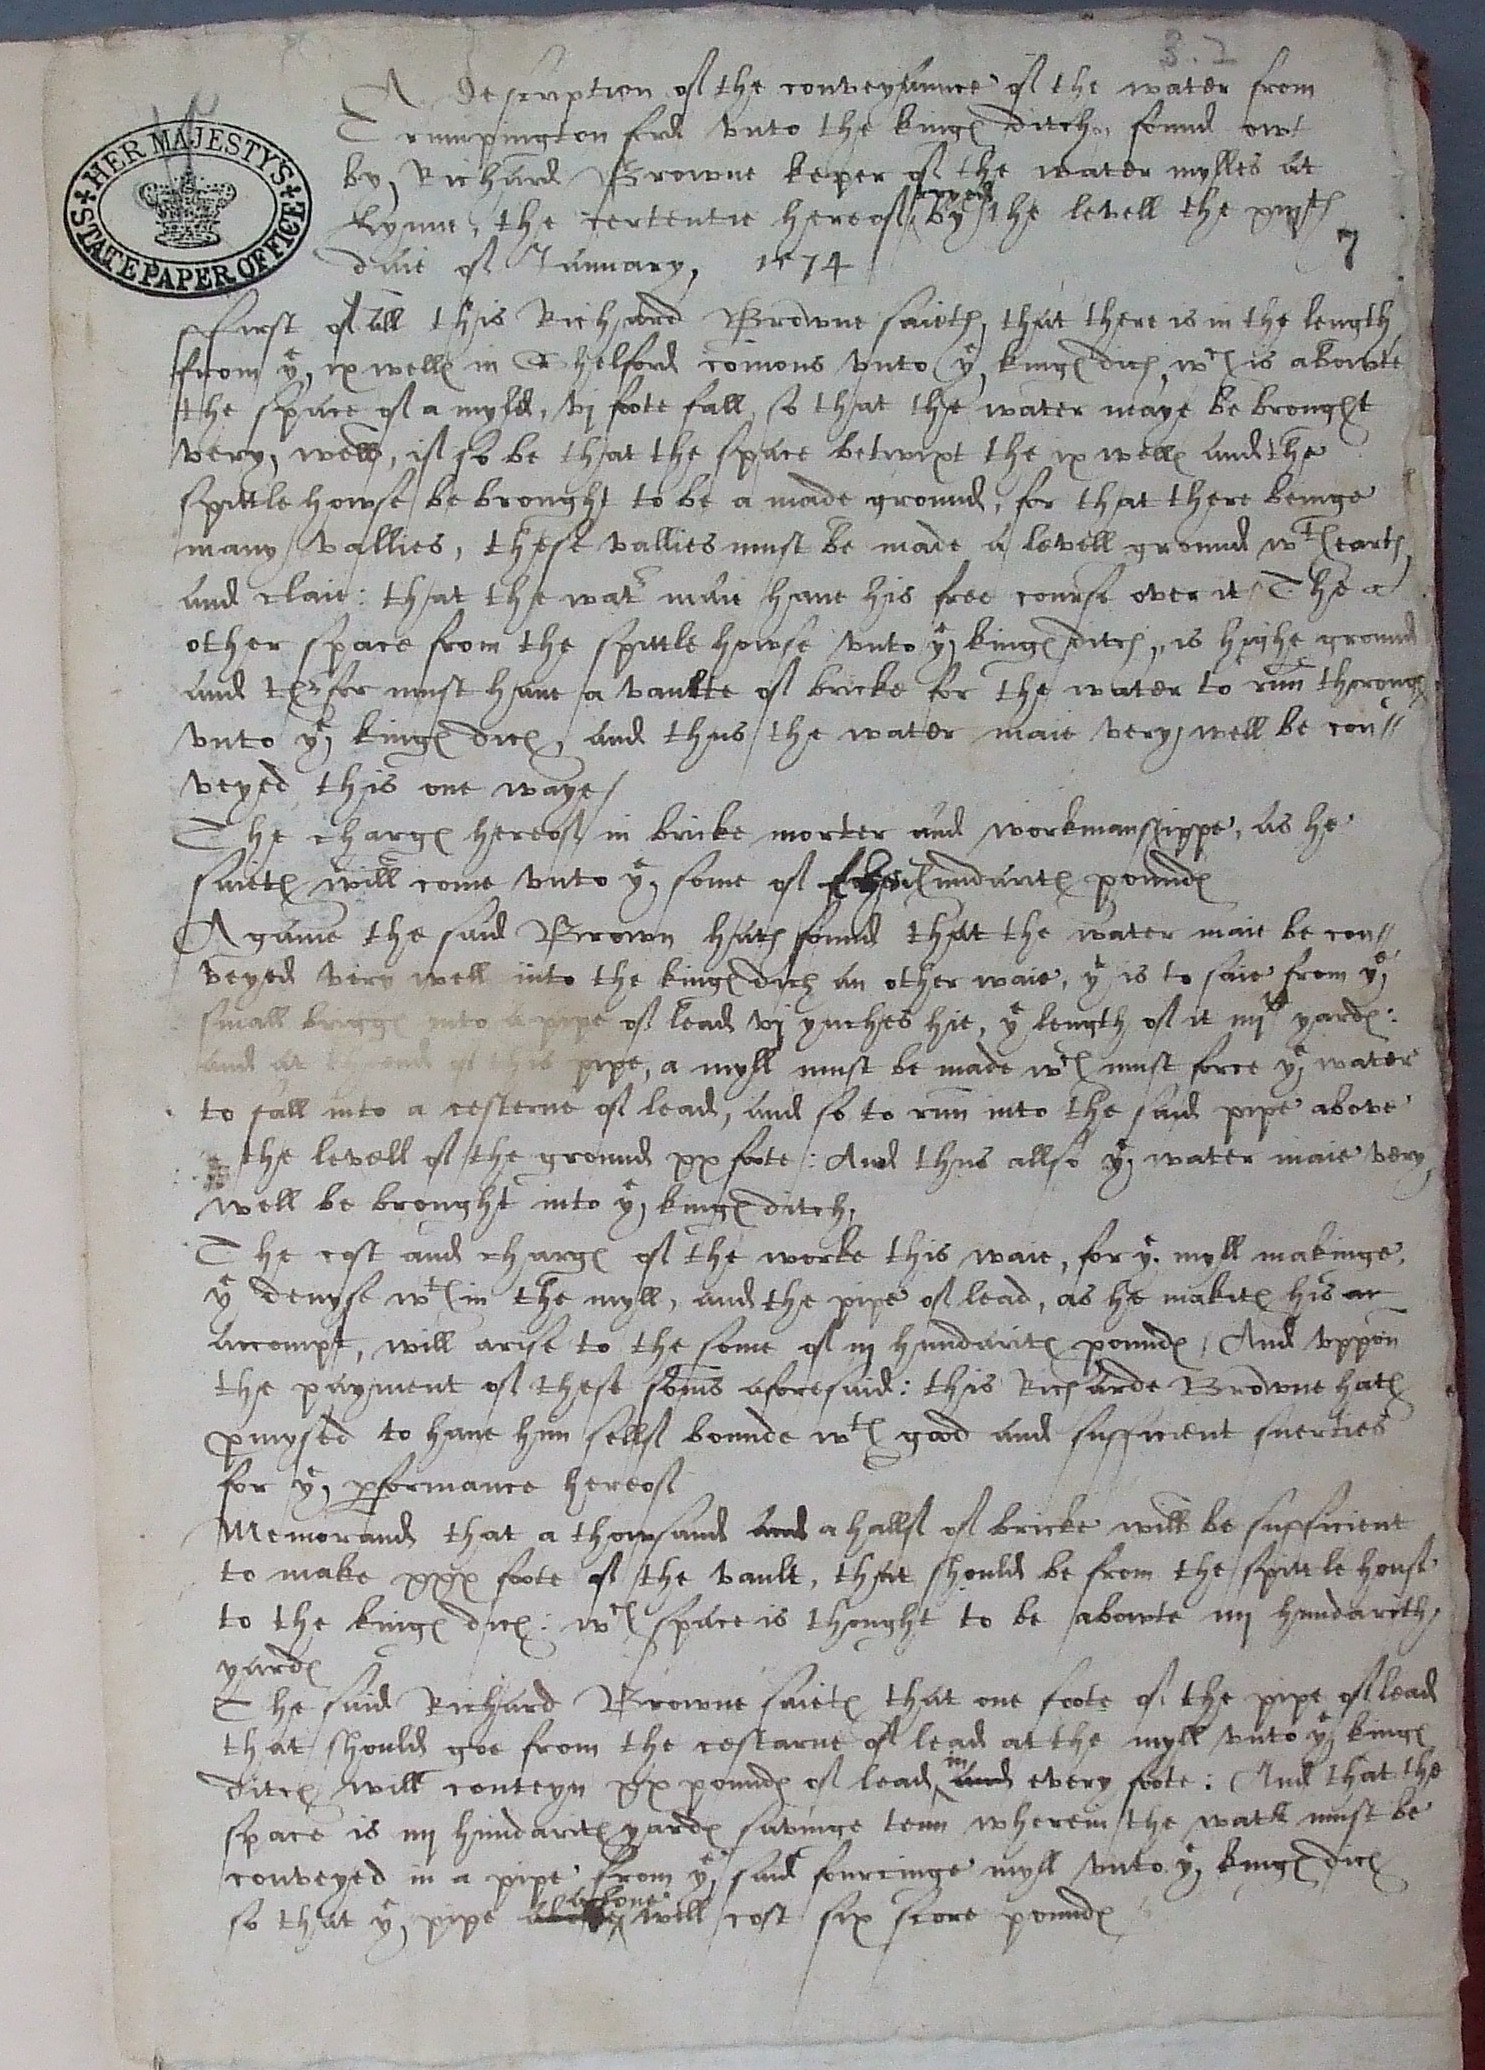 3.2
HER MAJESTY'S
STATE PAPER OFFICE
A Description of the conveyaunce of the water from
Trumpington ford vnto the kinges ditch, found owt
by Richard Browne keper of the water mylles at
Lynne, the certentie hereof tryed by the levell the
daie of January, 1574
7
First of all this Richard Browne saieth, that there is in the length
from ye ix welles in Shelford comons vnto ye kinges dich, wch is abowte
the space of a myle, vj foote fall, so that the water maye be brought
very well, if so be that the space betwixt the ix welles and the
spittle howse be brought to be a made ground, for that there beinge
many vallies, these vallies must be made a levell ground wth earth
and claie: that the watr maie haue his free course over it / The
other space from the spittle howse vnto ye kinges ditch, is highe ground
and therfor must haue a vaulte of bricke for the water to run thorough
vnto ye kinges dich, and thus the water maie very well be con//
veyed this one waye /
The charges hereof in bricke morter and workmanshippe, as he
saieth will come vnto ye some of hundarith poundes
Againe the said Brown hath found that the water maie be con//
veyed very well into the kinges dich an other waie, yt is to saie from ye
small brigges into a pipe of lead vj ynches hie, ye length of it iiijC yardes:
and at the end of this pipe, a myll must be made wch must force ye water
to fall into a cesterne of lead, and so to run into the said pipe above
the levell of the ground xx foote: And thus allso ye water maie very
well be brought into ye kinges ditch,
The cost and charges of the worke this waie, for ye myll makinge,
ye devyse wth in the myll, and the pipe of lead, as he maketh his ac
accompt, will arise to the some of iij hundarith poundes / And vppon
the payment of these soms aforesaid: this Richarde Browne hath
pmysed to haue him sellf bounde wth good and sufficient suerties
for ye pformance hereof
Memorand that a thowsand and a hallf of bricke will be sufficient
to make xxx foote of the vault, that should be from the spittle house
to the kinges dich: wch space is thought to be abowte iiij hundarith
yardes
The said Richard Browne saieth that one foote of the pipe of lead
that should goe from the cestarne of lead at the myll vnto ye kinges
ditch will conteyn xx poundes of lead in and every foote: And that the
space is iiij hundarith yardes savinge tenn wherein the watr must be
conveyed in a pipe from ye said fourcinge myll vnto ye kinges dich
so that ye pipe alone will cost six score poundes